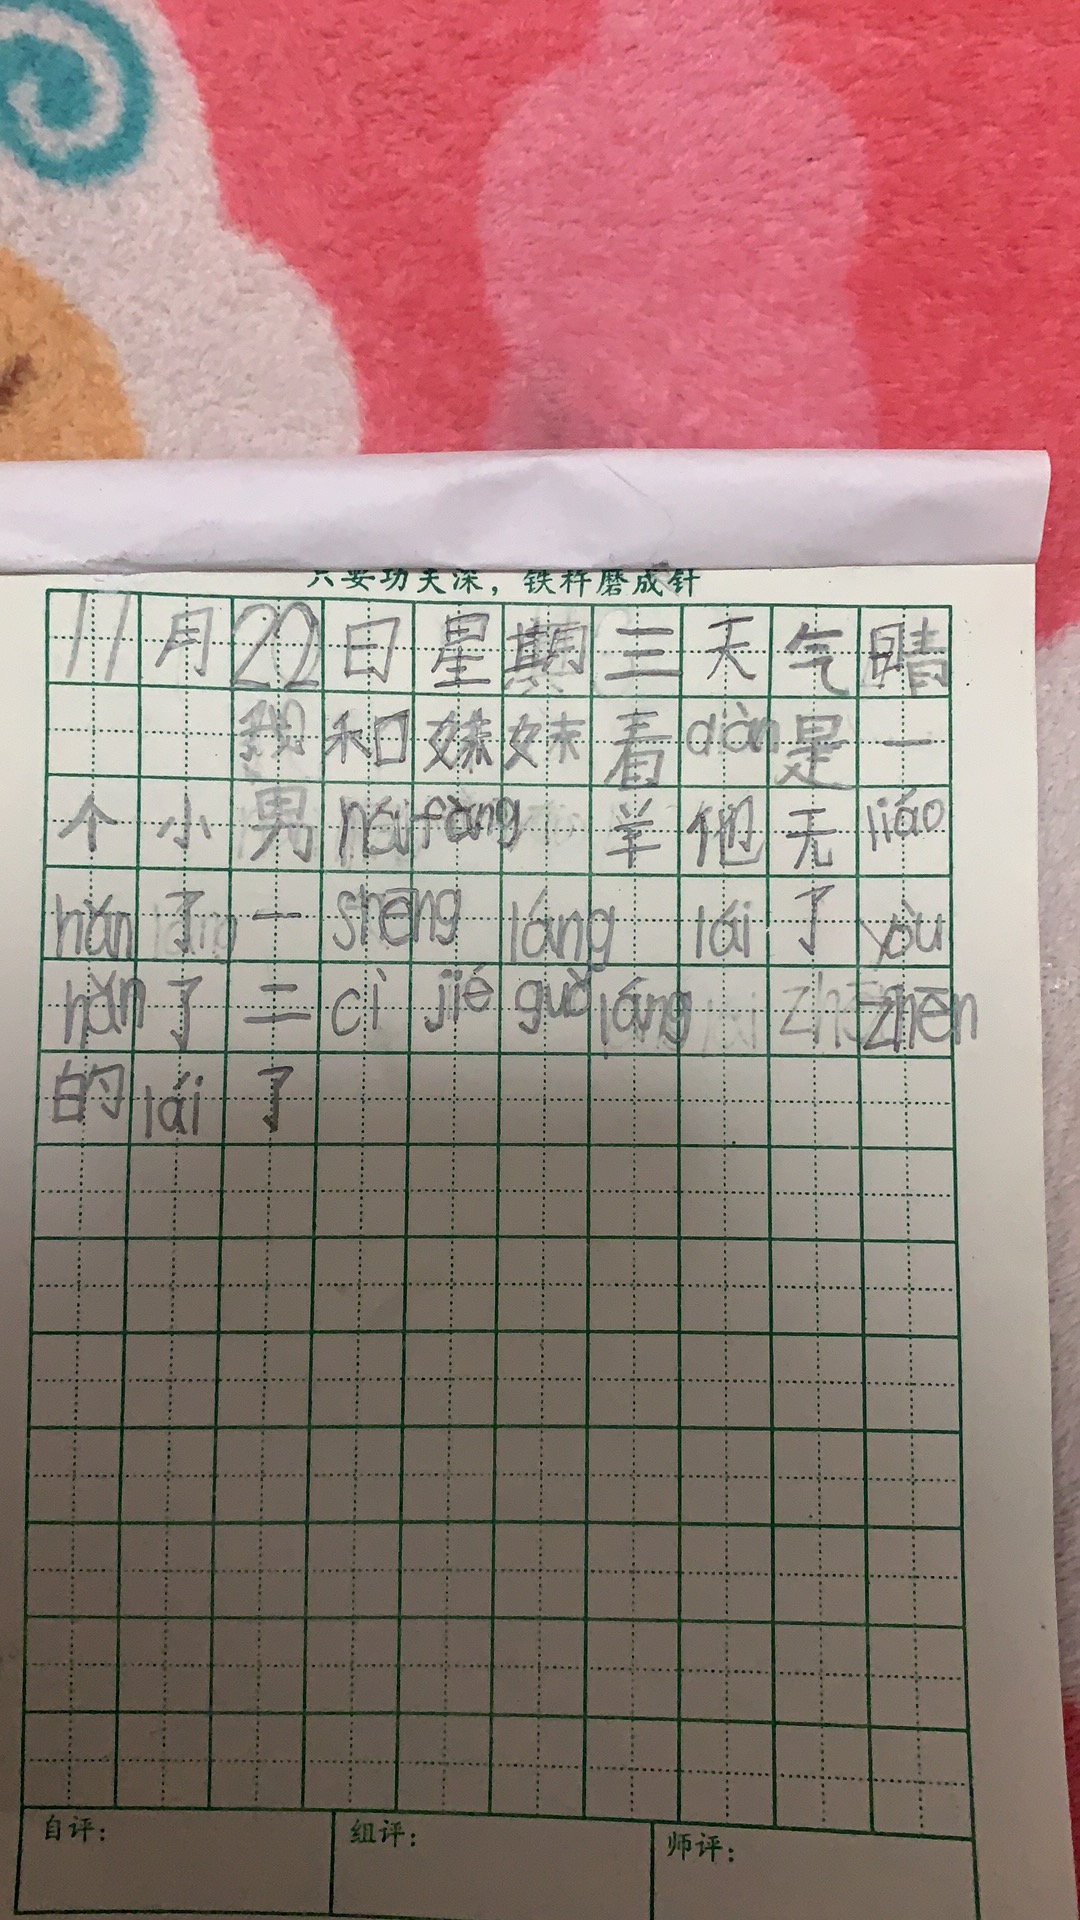 只要功夫深，铁杵磨成针
11月22日星期三天气晴
我和妹妹看diàn是一
个小男hái fàng羊他无liáo
hǎn了一shēng láng lái了yòu
hǎn了二cì jié guǒ láng zhēn
的lái了
自评： 组评： 师评：